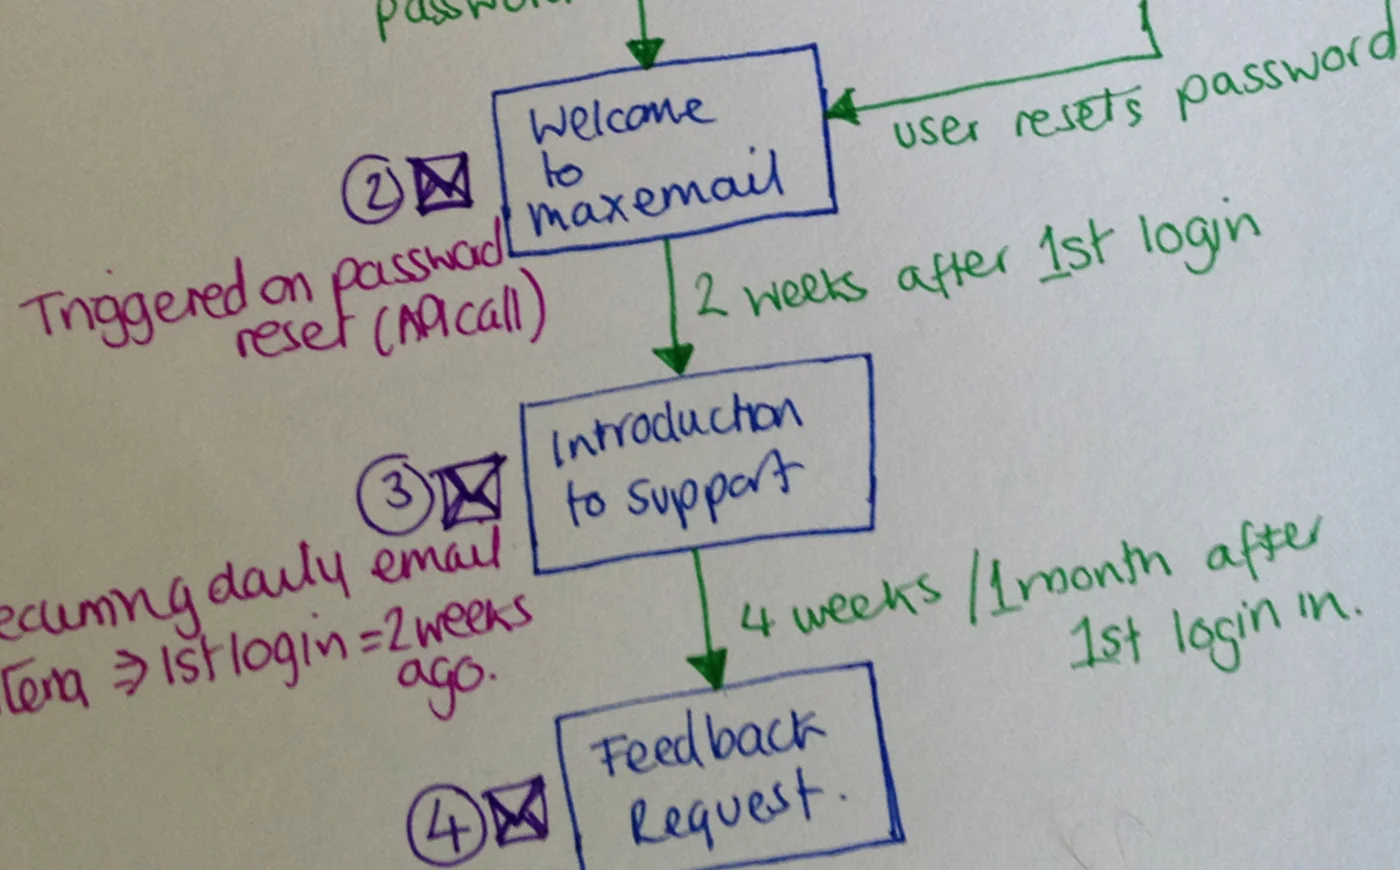 password
Welcome
to
maxemail
user resets password
2
Triggered on password
reset (API call)
2 weeks after 1st login
Introduction
to support
3
ecurring daily email
⇒ 1st login = 2 weeks
ago.
4 weeks / 1 month after
1st login in.
Feedback
Request.
4